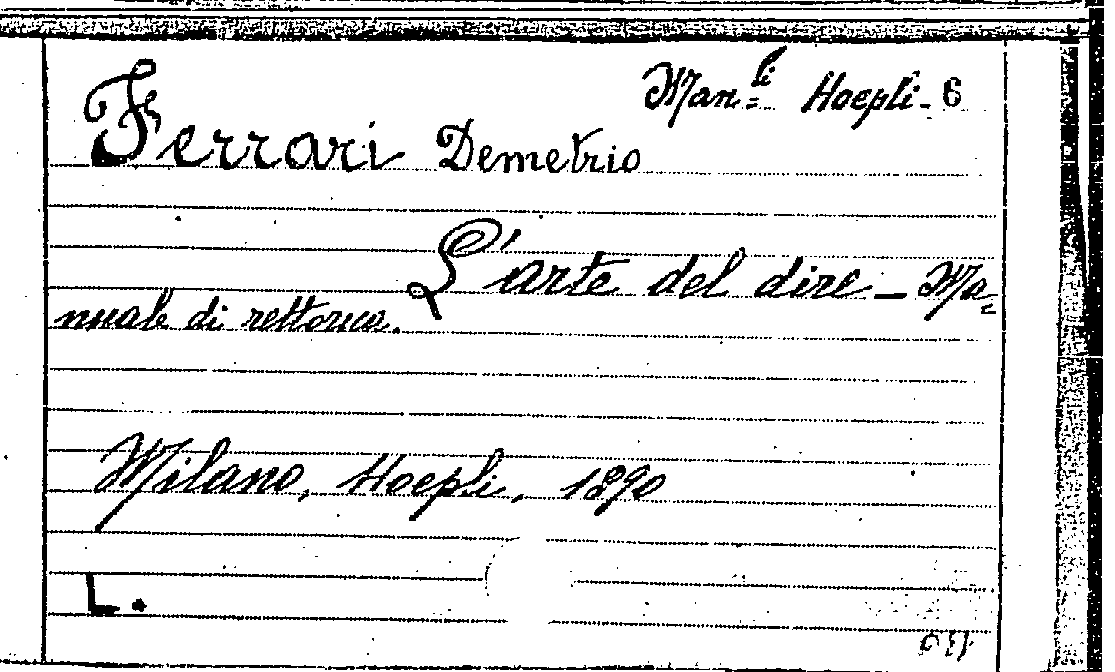 Man.li Hoepli - 6
Ferrari Demetrio
L'arte del dire - Ma=
nuale di rettorica.
Milano, Hoepli, 1890
L.